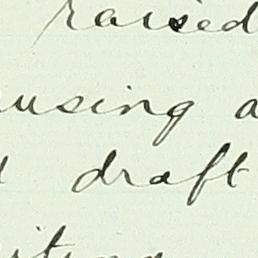 raised
using a
draft